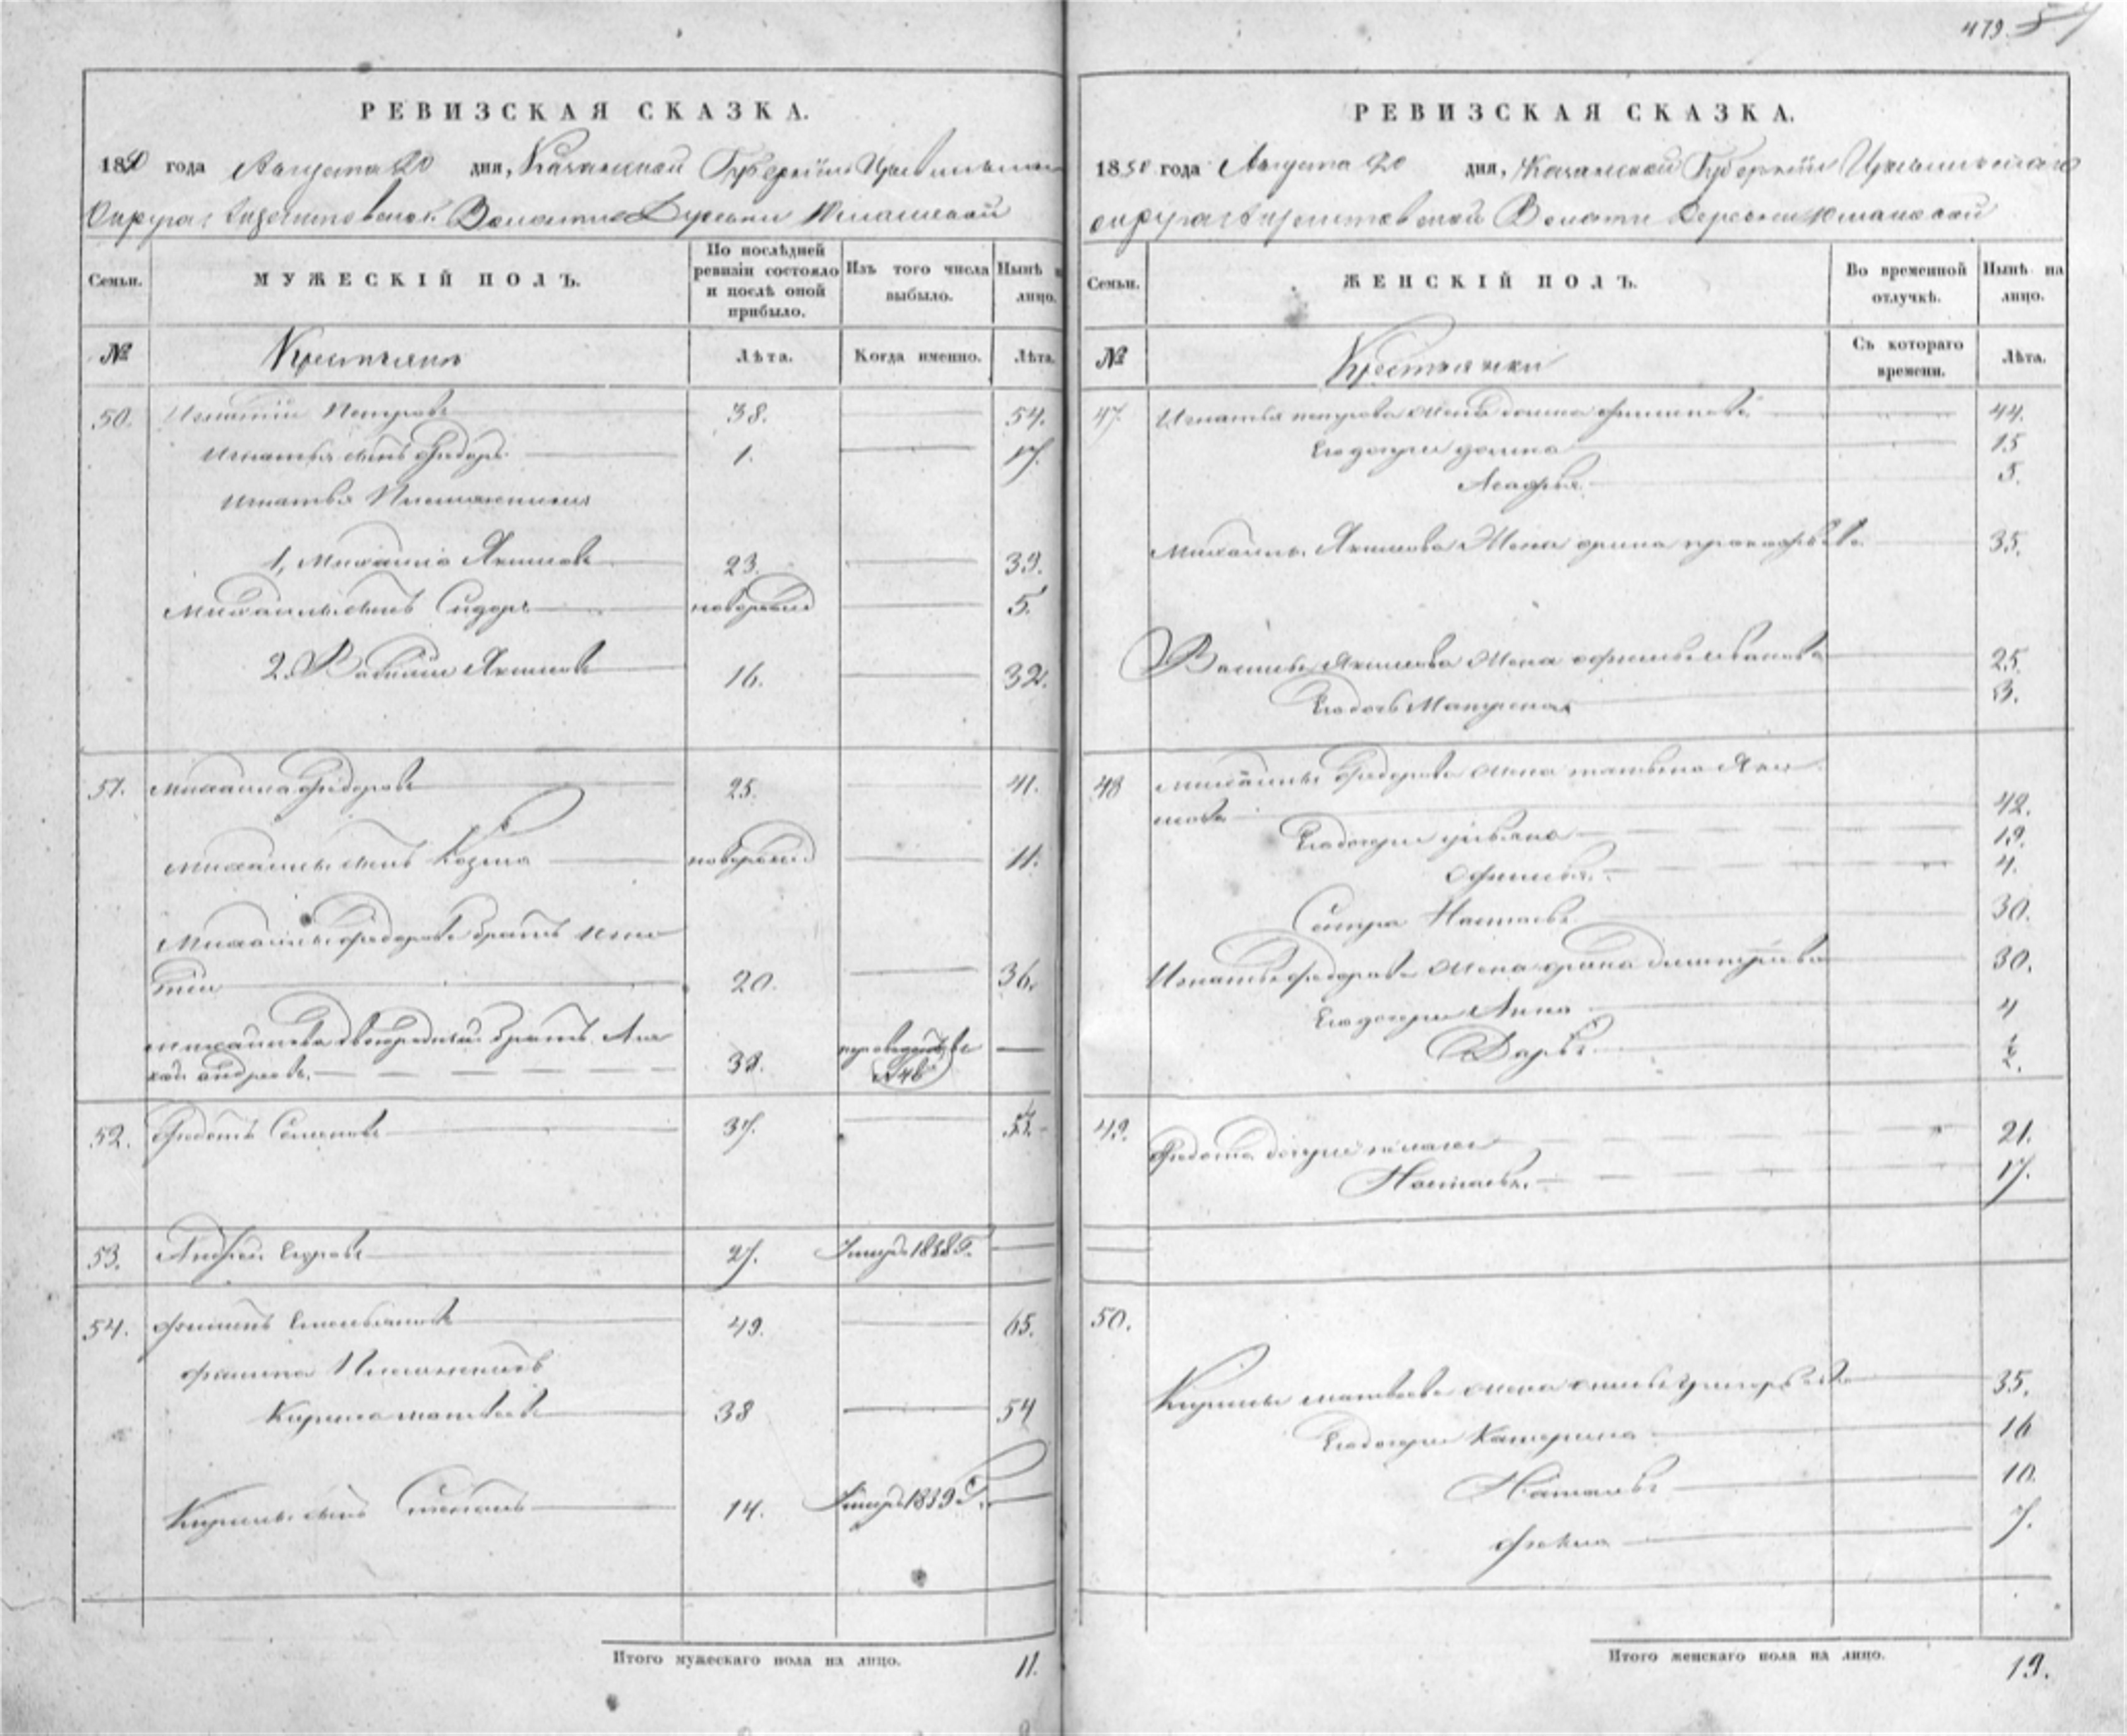 479.
РЕВИЗСКАЯ СКАЗКА.
1850 года Августа 20 дня, Казанской Губернїи Цывильскаго
Округа Волости Деревни Юманской
Семьи.
МУЖЕСКІЙ ПОЛЪ.
По послѣдней ревизіи состояло и послѣ оной прибыло.
Изъ того числа выбыло.
Нынѣ на лицо.
№
Крестьяне
Лѣта.
Когда именно.
Лѣта.
50. Игнатїй Петровъ 38. 54.
Игнатья сынъ Федоръ 1. 17.
Игнатья Племянники
1, Михайло Якимовъ 23. 39.
Михайлы сынъ Сидоръ новорожден 5.
2. Василий Якимовъ 16. 32.
51. Михайла Федоровъ 25. 41.
Михайлы сынъ Козма новорожден 11.
Михайлы Федорова братъ Игна
тїй 20. 36.
Михайлова двоюродный братъ
андреевъ. 38.
№ 46
52. Федотъ Семеновъ 37.
53. Андрей Егоровъ 27. Умеръ 1838 Г.
54. Филипъ Емельяновъ 49. 65.
Филипа Племянникъ
Кирила матвеевъ 38 54
Кирилы сынъ Степанъ 14. Умеръ 1839 Г.
Итого мужескаго пола на лицо. 11.
РЕВИЗСКАЯ СКАЗКА.
1850 года Августа 20 дня, Казанской Губернїи Цывильскаго
округа Волости Деревни Юманской
Семьи.
ЖЕНСКІЙ ПОЛЪ.
Во временной отлучкѣ.
Нынѣ на лицо.
№
Крестьянки
Съ котораго времени.
Лѣта.
47. Игнатья петрова жена филипова 44.
Его дочери 15
Агафья 5.
Михайлы Якимова Жена орина прокофьева 35.
Василья Якимова Жена офимья иванова 25.
Его дочь Матрена 3.
48 Михайлы Федорова жена татьяна Яки
мова 42.
Его дочери ульяна 19.
Офимья 4.
Сестра Настасья 30.
Игнатья федорова жена орина дмитриева 30.
Его дочери Анна 4
Дарья ½.
49. Федота дочери пелагея 21.
Настасья 17.
50.
Кирилы матвеева жена григорьева 35.
Его дочери Катерина 16
Наталья 10.
Фекла 7.
Итого женскаго пола на лицо. 19.